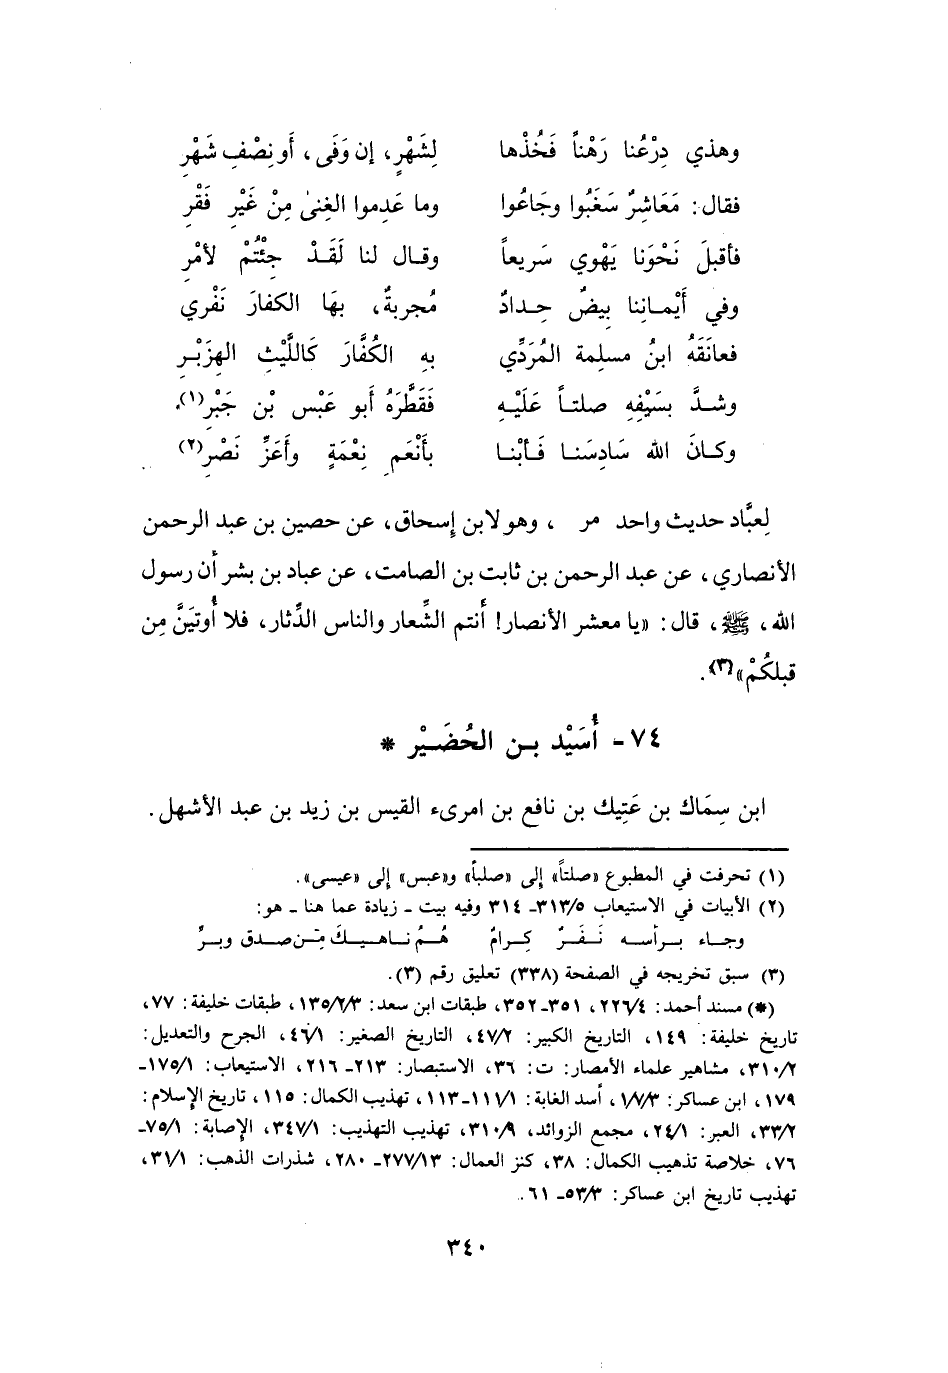 وهذي دِرْعُنا رَهْناً فَخُذْها لِشَهْرٍ، إن وَفَى، أَو نِصْفِ شَهْرِ
فقال: مَعَاشِرٌ سَغَبُوا وجَاعُوا وما عَدِموا الغِنىٰ مِنْ غَيْرِ فَقْرِ
فأقبلَ نَحْوَنا يَهْوِي سَريعاً وقـال لنا لَقَـدْ جِئْتُمْ لأمْرِ
وفي أَيْمـانِنا بيضٌ حِـدادٌ مُجربةٌ، بهَا الكفارَ نَفْرِي
فعانَقَهُ ابنُ مسلمة المُرَدِّي بهِ الكُفَّارَ كَاللَّيْثِ الهِزَبْـرِ
وشـدَّ بسَيْفِهِ صلتـاً عَلَيْـهِ فَقَطَّرَهُ أَبو عَبْسِ بْنِ جَبْرِ(١).
وكـانَ الله سَادِسَنـا فَـأبْنـا بأَنْعَمِ نِعْمَةٍ وأَعَزِّ نَصْرِ(٢)
لِعبَّاد حديث واحد مر ، وهو لابن إِسحاق، عن حصين بن عبد الرحمن
الأنصاري، عن عبد الرحمن بن ثابت بن الصامت، عن عباد بن بشر أن رسول
الله، ﷺ، قال: «يا معشر الأنصار! أنتم الشِّعار والناس الدِّثار، فلا أُوتَيَنَّ مِن
قبلكُمْ»(٣).
٧٤ - أُسَيْد بـن الحُضَيْر *
ابن سِمَاك بن عَتِيك بن نافع بن امرىء القيس بن زيد بن عبد الأشهل.
(١) تحرفت في المطبوع «صلتاً» إلى «صلباً» و«عبس» إلى «عيسى».
(٢) الأبيات في الاستيعاب ٣١٣/٥ـ ٣١٤ وفيه بيت ـ زيادة عما هنا ـ هو:
وجـاء بـرأسـه نَـفَـرٌ كِـرامٌ هُـمُ نـاهـيـكَ مِـن صـدق وبـرِّ
(٣) سبق تخريجه في الصفحة (٣٣٨) تعليق رقم (٣).
(*) مسند أحمد: ٢٢٦/٤، ٣٥١ـ٣٥٢، طبقات ابن سعد: ١٣٥/٢/٣، طبقات خليفة: ٧٧،
تاريخ خليفة: ١٤٩، التاريخ الكبير: ٤٧/٢، التاريخ الصغير: ٤٦/١، الجرح والتعديل:
٣١٠/٢، مشاهير علماء الأمصار: ت: ٣٦، الاستبصار: ٢١٣ـ ٢١٦، الاستيعاب: ١٧٥/١ـ
١٧٩، ابن عساكر: ١/٧/٣، أسد الغابة: ١١١/١ـ١١٣، تهذيب الكمال: ١١٥، تاريخ الإسلام:
٣٣/٢، العبر: ٢٤/١، مجمع الزوائد، ٣١٠/٩، تهذيب التهذيب: ٣٤٧/١، الإصابة: ٧٥/١ـ
٧٦، خلاصة تذهيب الكمال: ٣٨، كنز العمال: ٢٧٧/١٣ـ ٢٨٠، شذرات الذهب: ٣١/١،
تهذيب تاريخ ابن عساكر: ٥٣/٣ـ ٦١.
٣٤٠